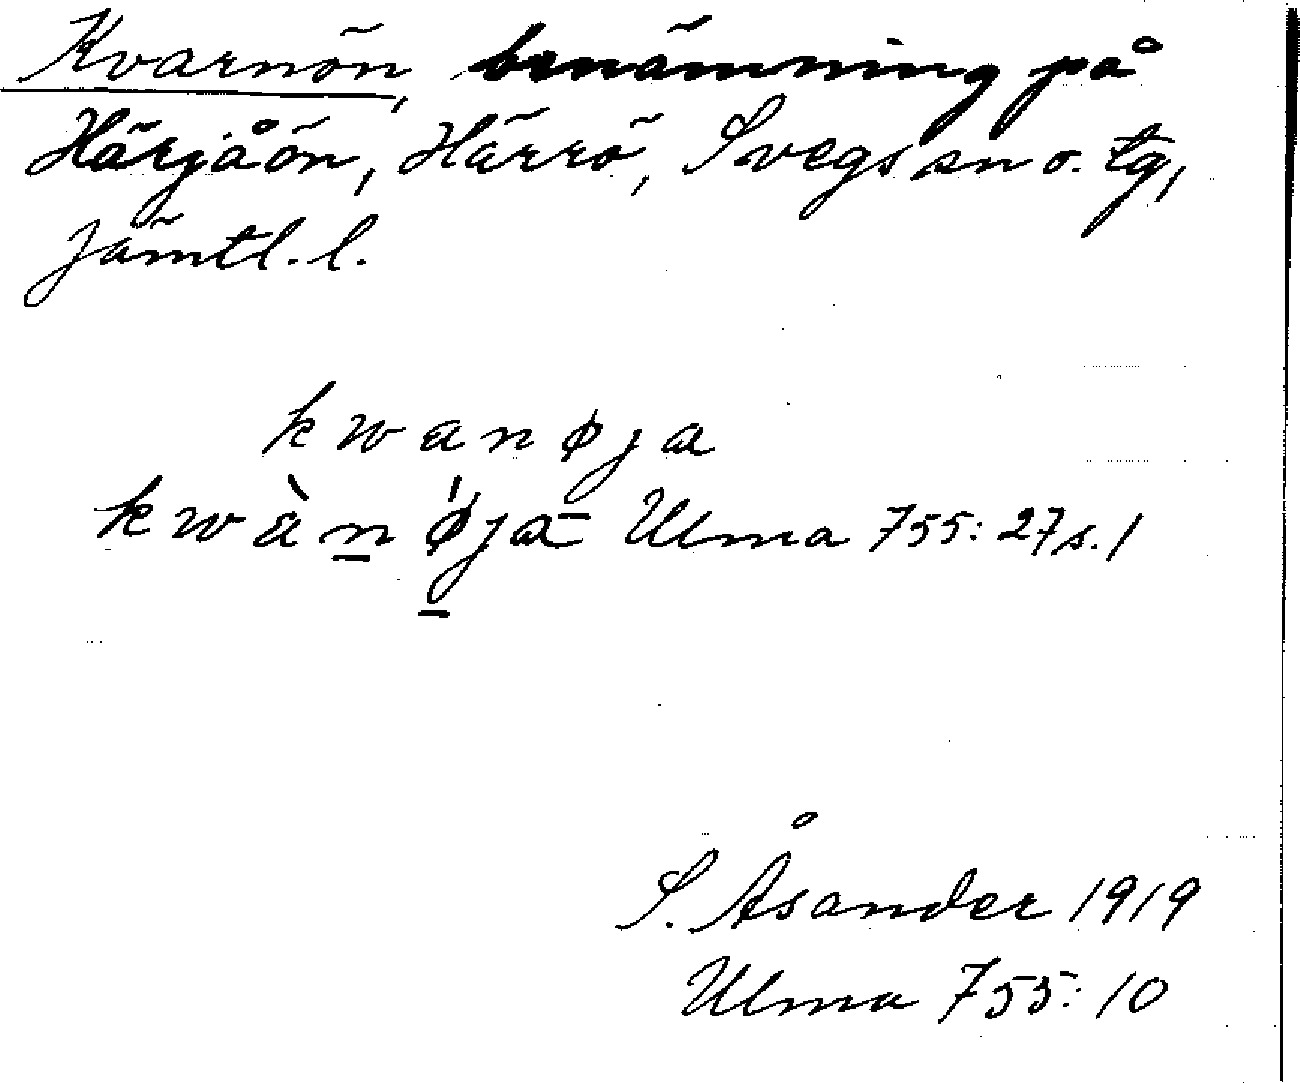 Kvarnön, benämning på
Härjåön, Härrö, Svegs sn o. tg,
Jämtl. l.
kwanøja
kwànǿja Ulma 755: 27 s. 1
S. Åsander 1919
Ulma 755: 10